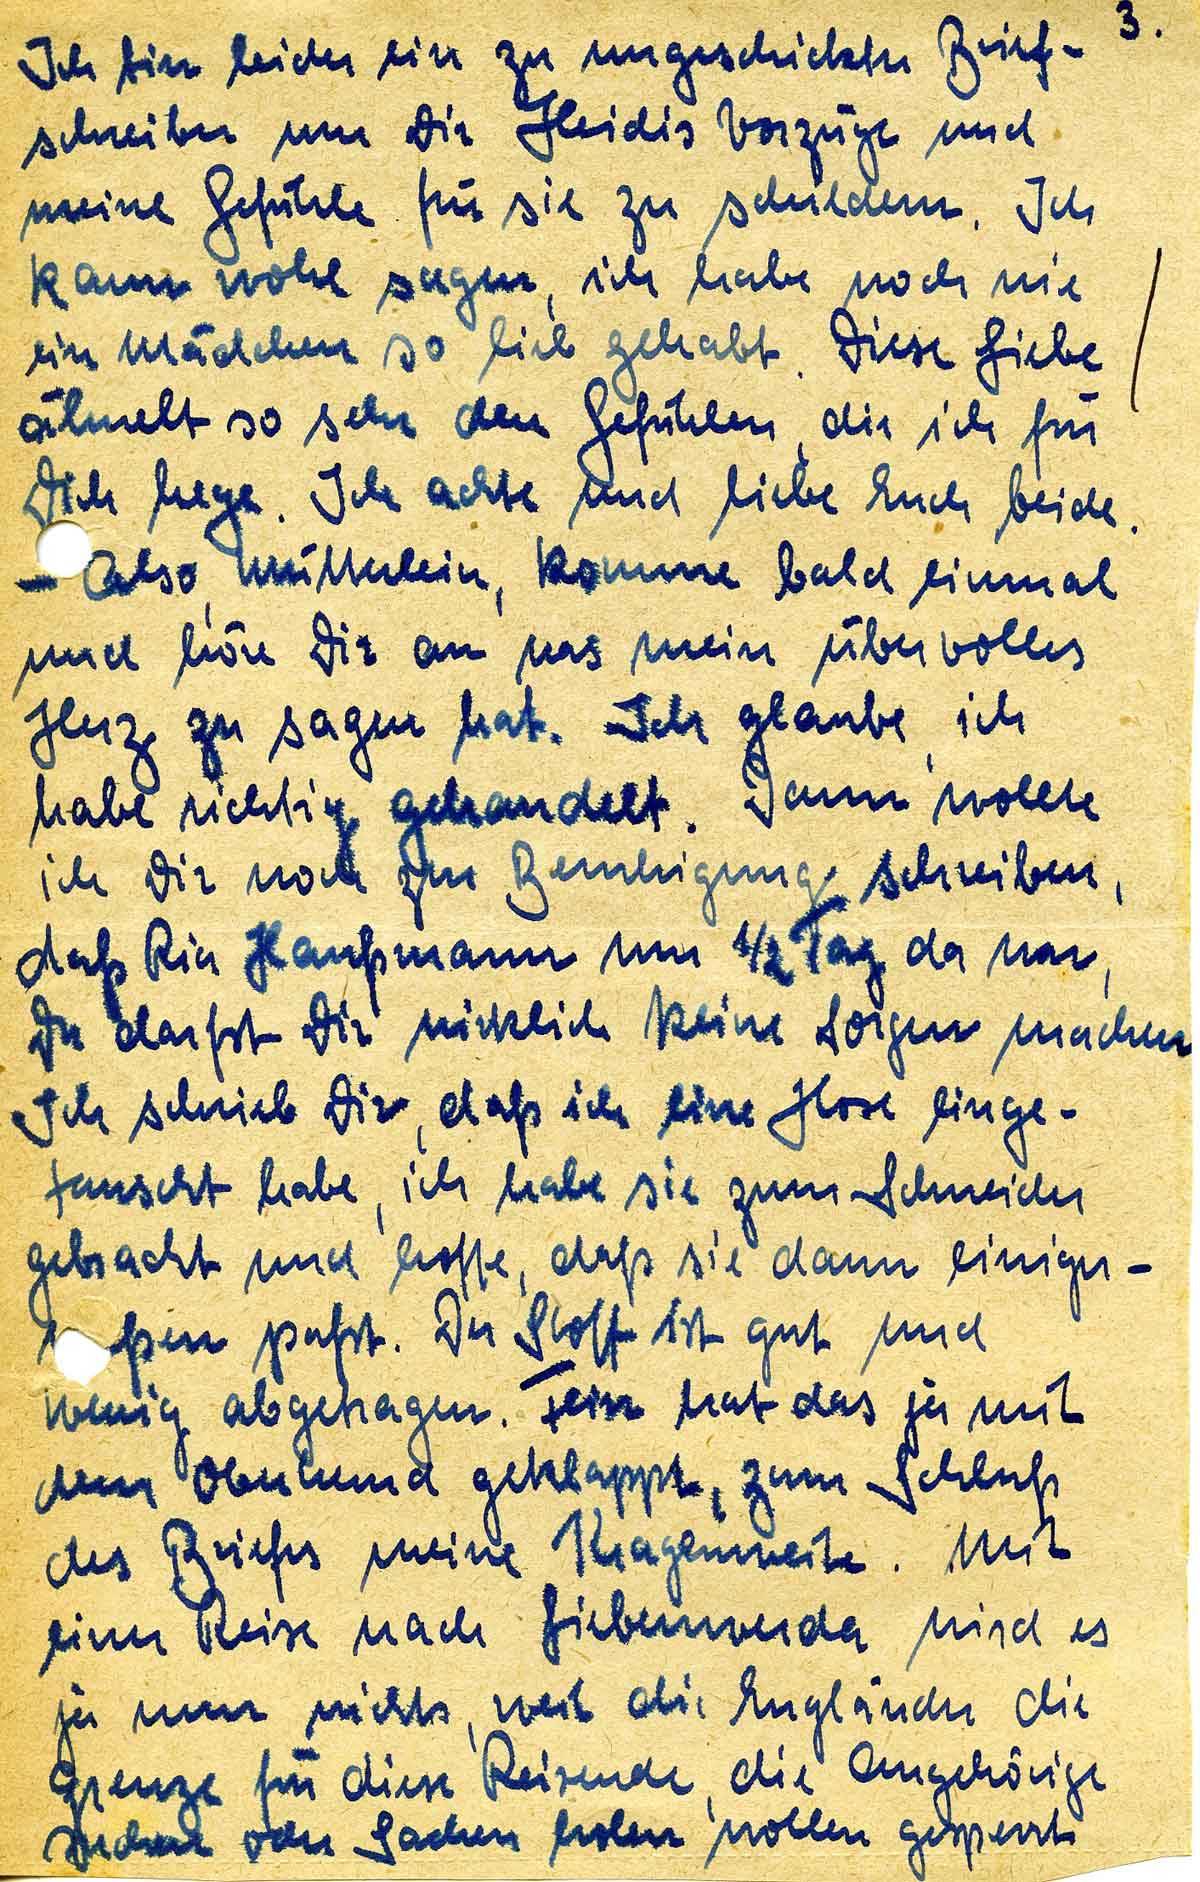 3.
Ich bin leider ein zu ungeschickter Brief-
schreiber um Dir Heidis Vorzüge und
meine Gefühle für sie zu schildern. Ich
kann wohl sagen, ich habe noch nie
ein Mädchen so lieb gehabt. Diese Liebe
ähnelt so sehr den Gefühlen, die ich für
Dich hege. Ich achte und liebe Euch beide.
- Also, Mütterlein, komme bald einmal
und höre Dir an was mein übervolles
Herz zu sagen hat. Ich glaube, ich
habe richtig gehandelt. Dann wollte
ich Dir noch zur Beruhigung schreiben,
daß Ria Haußmann nur 1/2 Tag da war,
Du darfst Dir wirklich keine Sorgen machen
Ich schrieb Dir, daß ich eine Hose einge-
tauscht habe, ich habe sie zum Schneider
gebracht und hoffe, daß sie dann einiger-
ßen paßt. Der Stoff ist gut und
wenig abgetragen. Fein hat das ja mit
dem Oberhemd geklappt, zum Schluß
des Briefes meine Kragenweite. Mit
einer Reise nach Liebenwerda wird es
ja nun nichts, weil die Engländer die
Grenze für diese Reisende, die Angehörige
suchen oder Sachen holen wollen gesperrt